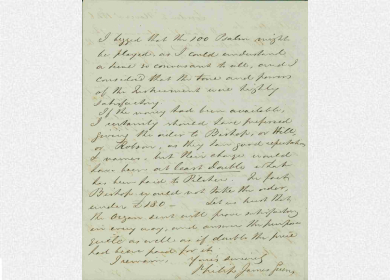 I begged that the 100 Psalm might
be played, as I could understand
a tune so consonant to all, and I
consider that the tone and powers
of the Instrument were highly
satisfactory.
If the money had been available,
I certainly should have preferred
giving the order to Bishop, or Hill,
or Robson, as they have good reputation,
& names, but their charge would
have been at least double what
has been paid to
Bishop would not take the order,
under £180 - Let us trust that
the Organ sent will prove satisfactory
in every way, and answer the purpose
quite as well as if double the price
had been paid for it.
I remain, Yours sincerely
Philip James